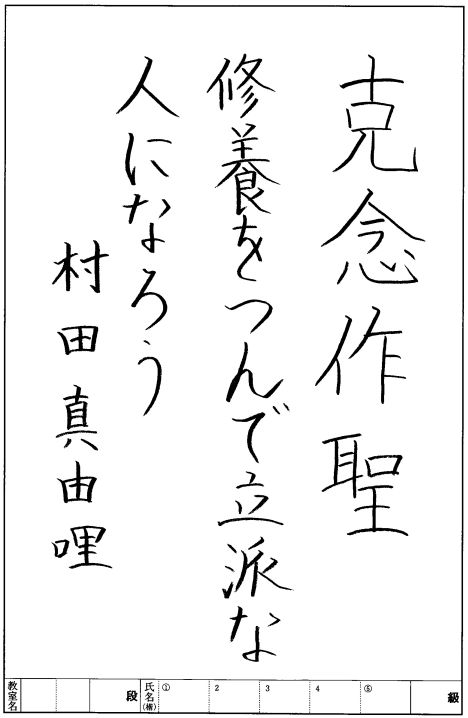 克念作聖
修養をつんで立派な
人になろう
村田真由哩
教室名 段 氏名(横) ① 2 3 4 ⑤ 級